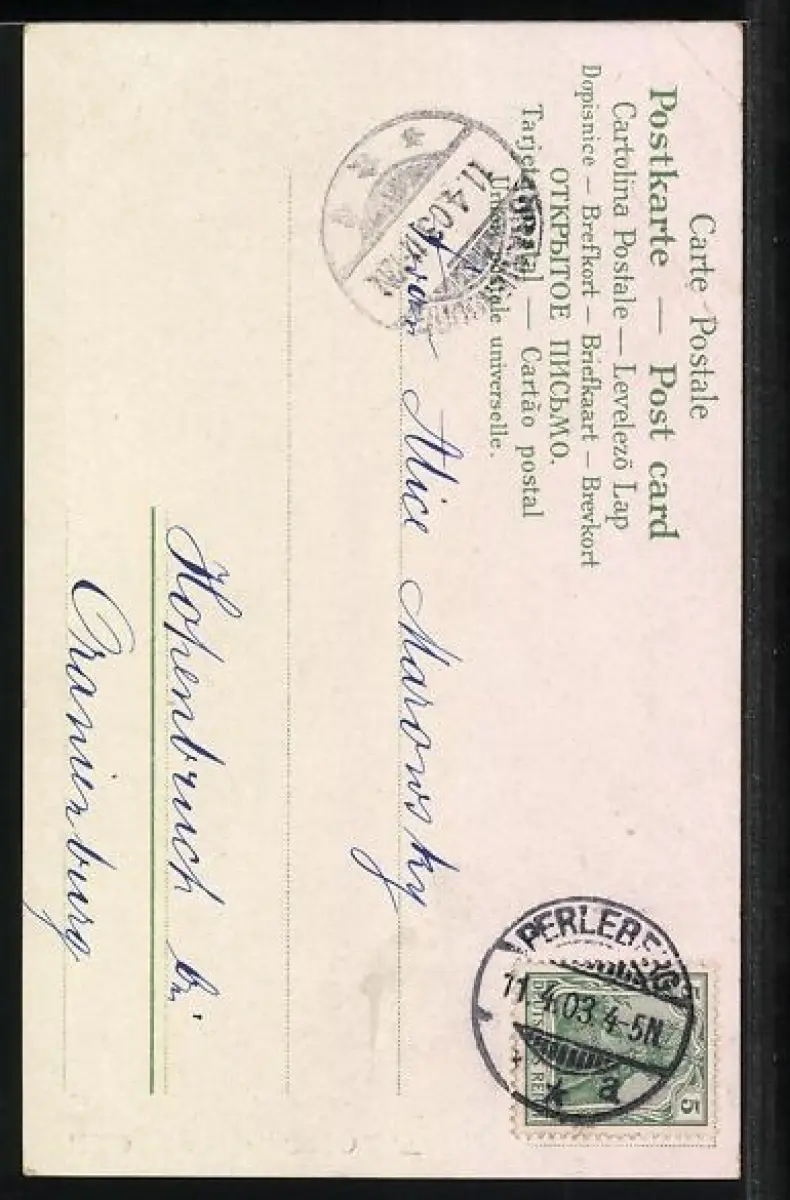 Carte Postale
Postkarte — Post card
Cartolina Postale — Levelező Lap
Dopisnice – Brefkort – Briefkaart – Brevkort
ОТКРЫТОЕ ПИСЬМО.
Tarjeta postal — Cartão postal
Union postale universelle.
11.4.03
PERLEBERG
11.4.03.4-5N.
* a
DEUTSCHES REICH
5
Alice Marowsky
Hohenbruch bei
Oranienburg